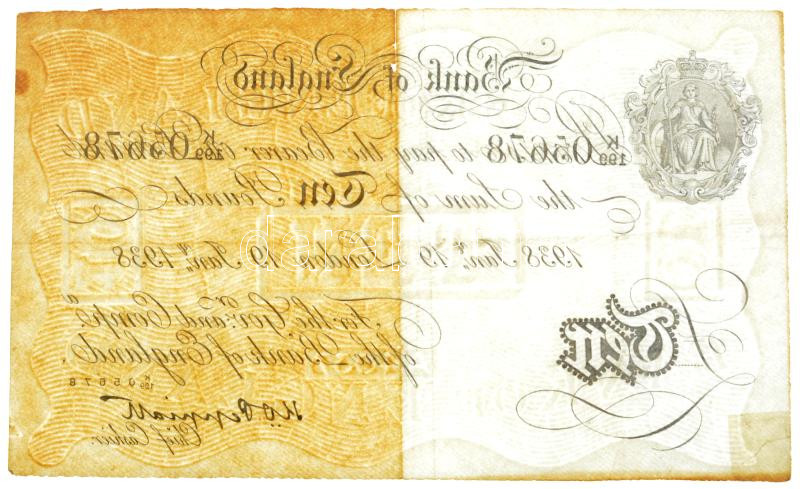 Bank of England
K 199 05678 to pay the Bearer on K 199 05678
the Sum of Ten Pounds
1938 Jany. 19 London 19 Jany. 1938
For the Govr. and Compa.
of the Bank of England.
Ten
K 199 05678
K.O. Peppiatt
Chief Cashier.